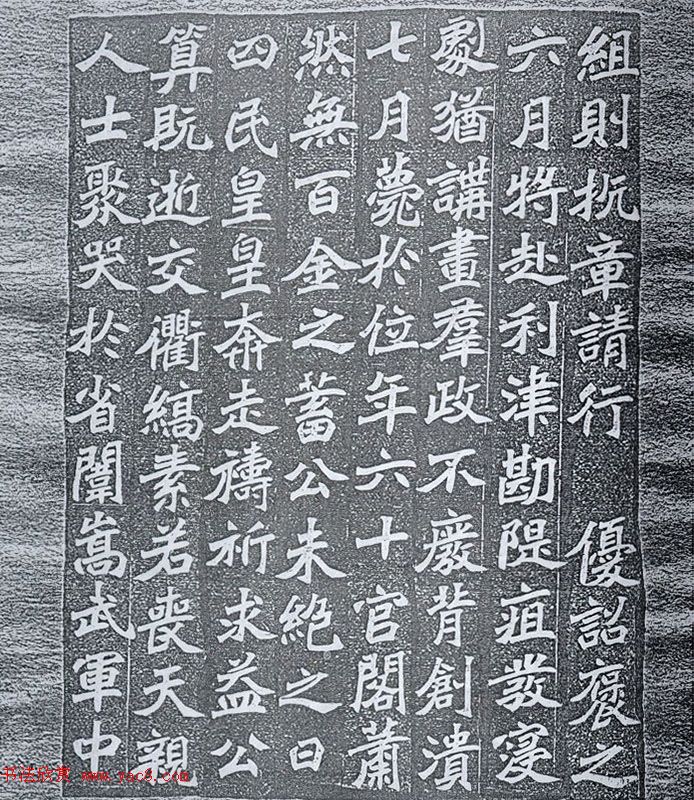 組則抗章請行 優詔褒之
六月將赴利津勘隄疽發寖
劇猶講畫羣政不廢背創潰
七月薨於位年六十官閣蕭
然無百金之蓄公未絕之日
四民皇皇奔走禱祈求益公
算旣逝交衢縞素若喪天親
人士聚哭於省闈嵩武軍中
书法欣赏 www.yac8.com